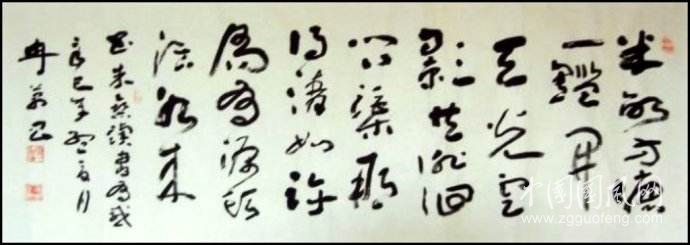 半畝方塘
一鑑開
天光雲
影共徘徊
问渠那
得清如許
為有源頭
活水来
朱熹讀書有感
辛巳年 月
中国国风网
www.zgguofeng.com